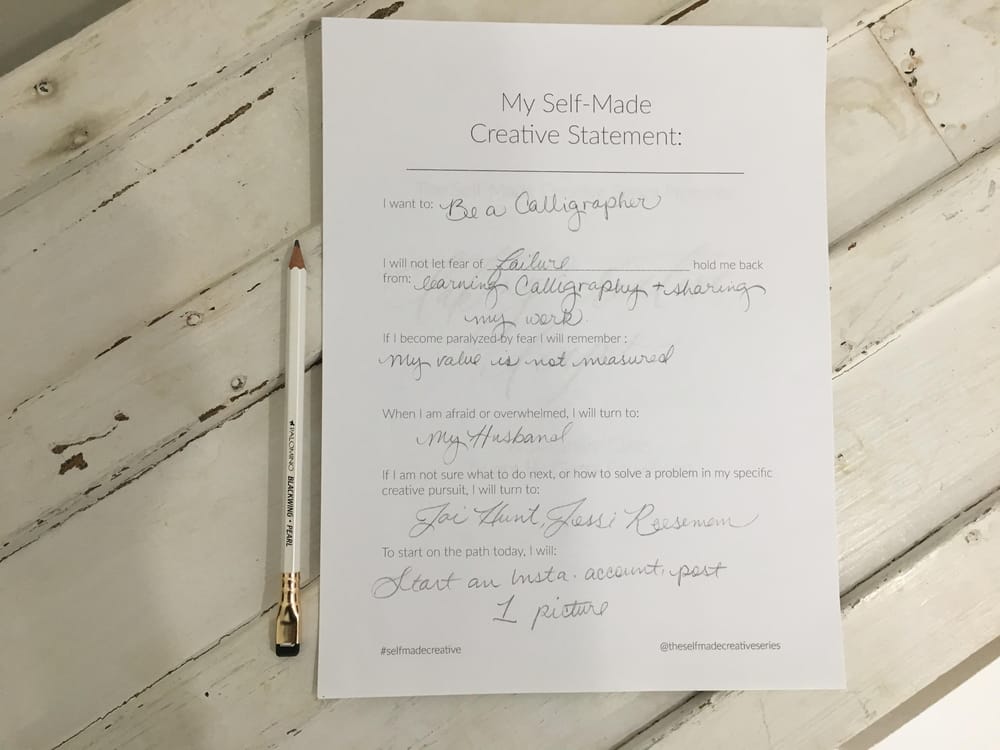 My Self-Made
Creative Statement:
I want to: Be a Calligrapher
I will not let fear of failure hold me back
from: learning Calligraphy + sharing
my work
If I become paralyzed by fear I will remember :
my value is not measured
When I am afraid or overwhelmed, I will turn to:
my Husband
If I am not sure what to do next, or how to solve a problem in my specific
creative pursuit, I will turn to:
Joi Hunt, Jessi
To start on the path today, I will:
Start an Insta. account, post
1 picture
#selfmadecreative
@theselfmadecreativeseries
PALOMINO BLACKWING • PEARL